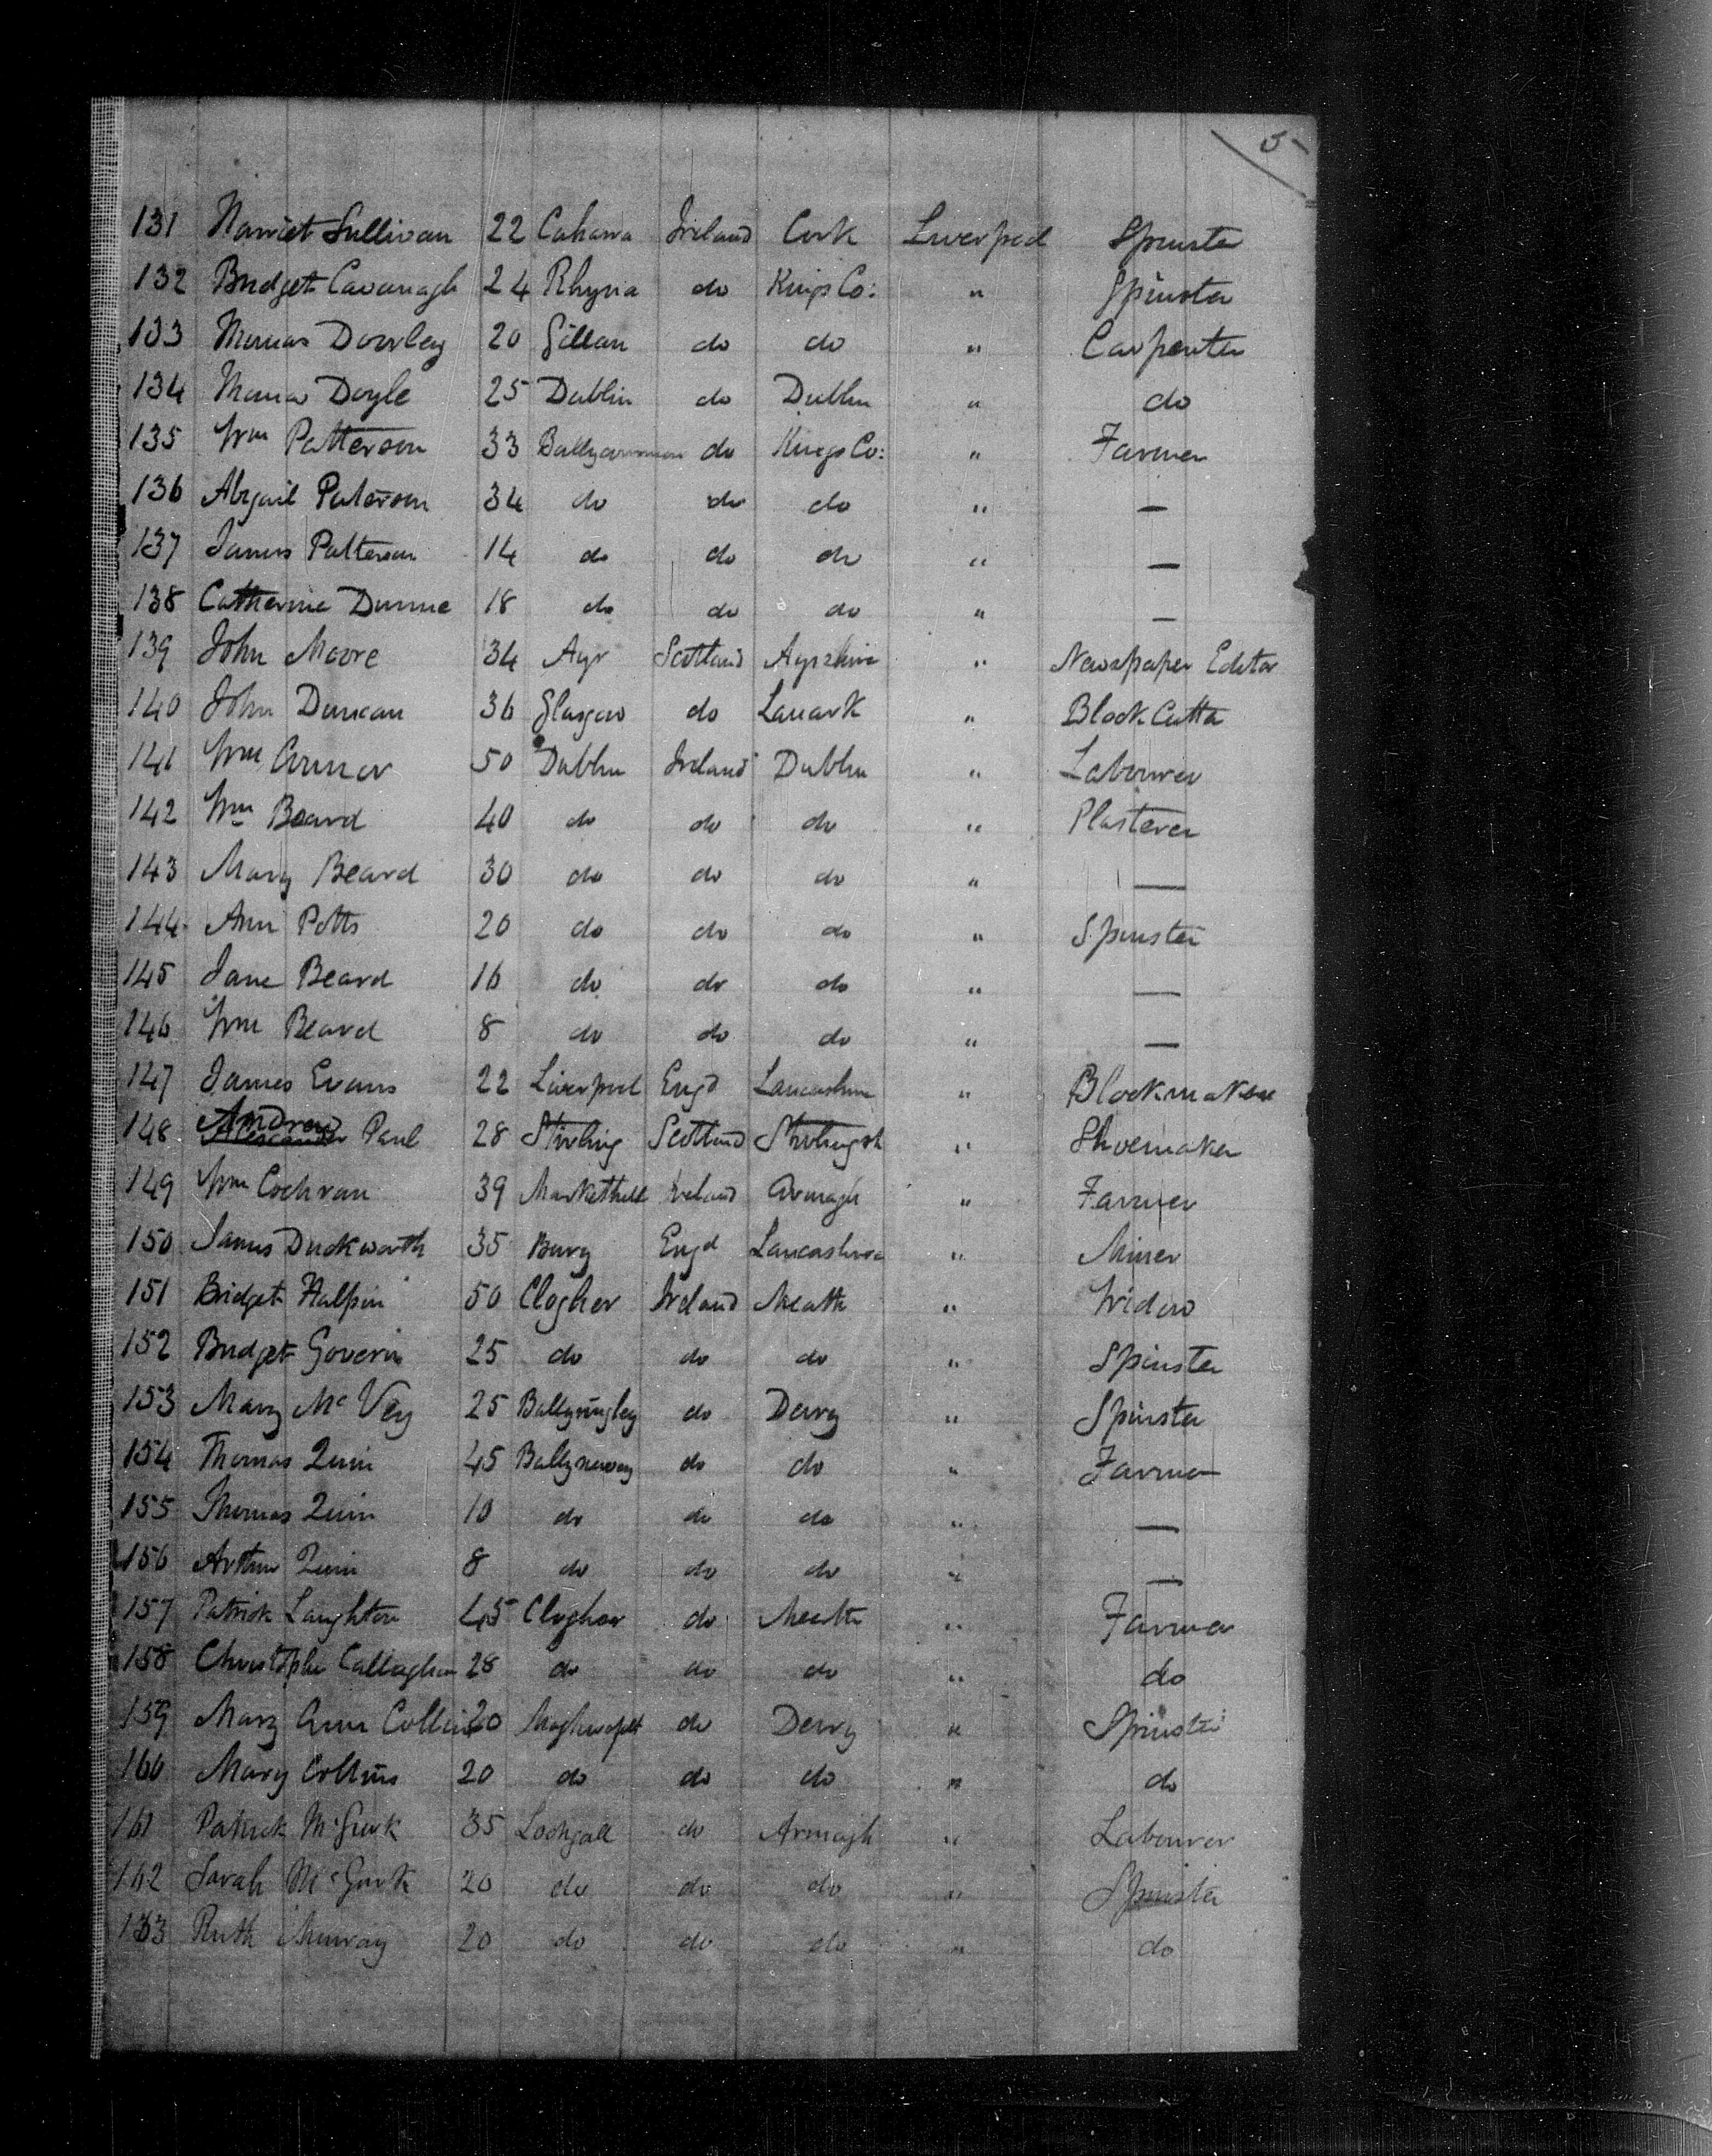 5
131 Harriet Sullivan 22 Ireland Cork Liverpool Spinster
132 Bridget Cavanagh 24 Rhyna do Kings Co: " Spinster
133 Thomas Doorley 20 Gillan do do " Carpenter
134 Doyle 25 Dublin do Dublin " do
135 Wm Patterson 33 do Kings Co: " Farmer
136 Abigail Paterson 34 do do do " —
137 James Patterson 14 do do do " —
138 Catherine Dunne 18 do do do " —
139 John Moore 34 Ayr Scotland Ayrshire " Newspaper Editor
140 John Duncan 36 Glasgow do Lanark " Block Cutter
141 Wm 50 Dublin Ireland Dublin " Labourer
142 Wm Beard 40 do do do " Plasterer
143 Mary Beard 30 do do do " —
144 Ann Potts 20 do do do " Spinster
145 Jane Beard 16 do do do " —
146 Wm Beard 8 do do do " —
147 James Evans 22 Liverpool Engd Lancashire " Blockmaker
148 Andrew Paul 28 Stirling Scotland Stirlingsh " Shoemaker
149 Wm Cochran 39 Markethill Ireland Armagh " Farmer
150 James Duckworth 35 Bury Engd Lancashire " Miner
151 Bridget Halpin 50 Clogher Ireland Meath " Widow
152 Bridget Goverin 25 do do do " Spinster
153 Mary McVey 25 do Derry " Spinster
154 Thomas Quin 45 do do " Farmer
155 Thomas Quin 10 do do do " —
156 Arthur Quin 8 do do do " —
157 Patrick Laughton 45 Clogher do Meath " Farmer
158 Christopher Callaghan 28 do do do " do
159 Mary Ann Collins 20 do Derry " Spinster
160 Mary Collins 20 do do do " do
161 Patrick McGurk 35 Lochgall do Armagh " Labourer
162 Sarah McGurk 20 do do do " Spinster
163 Ruth Murray 20 do do do " do